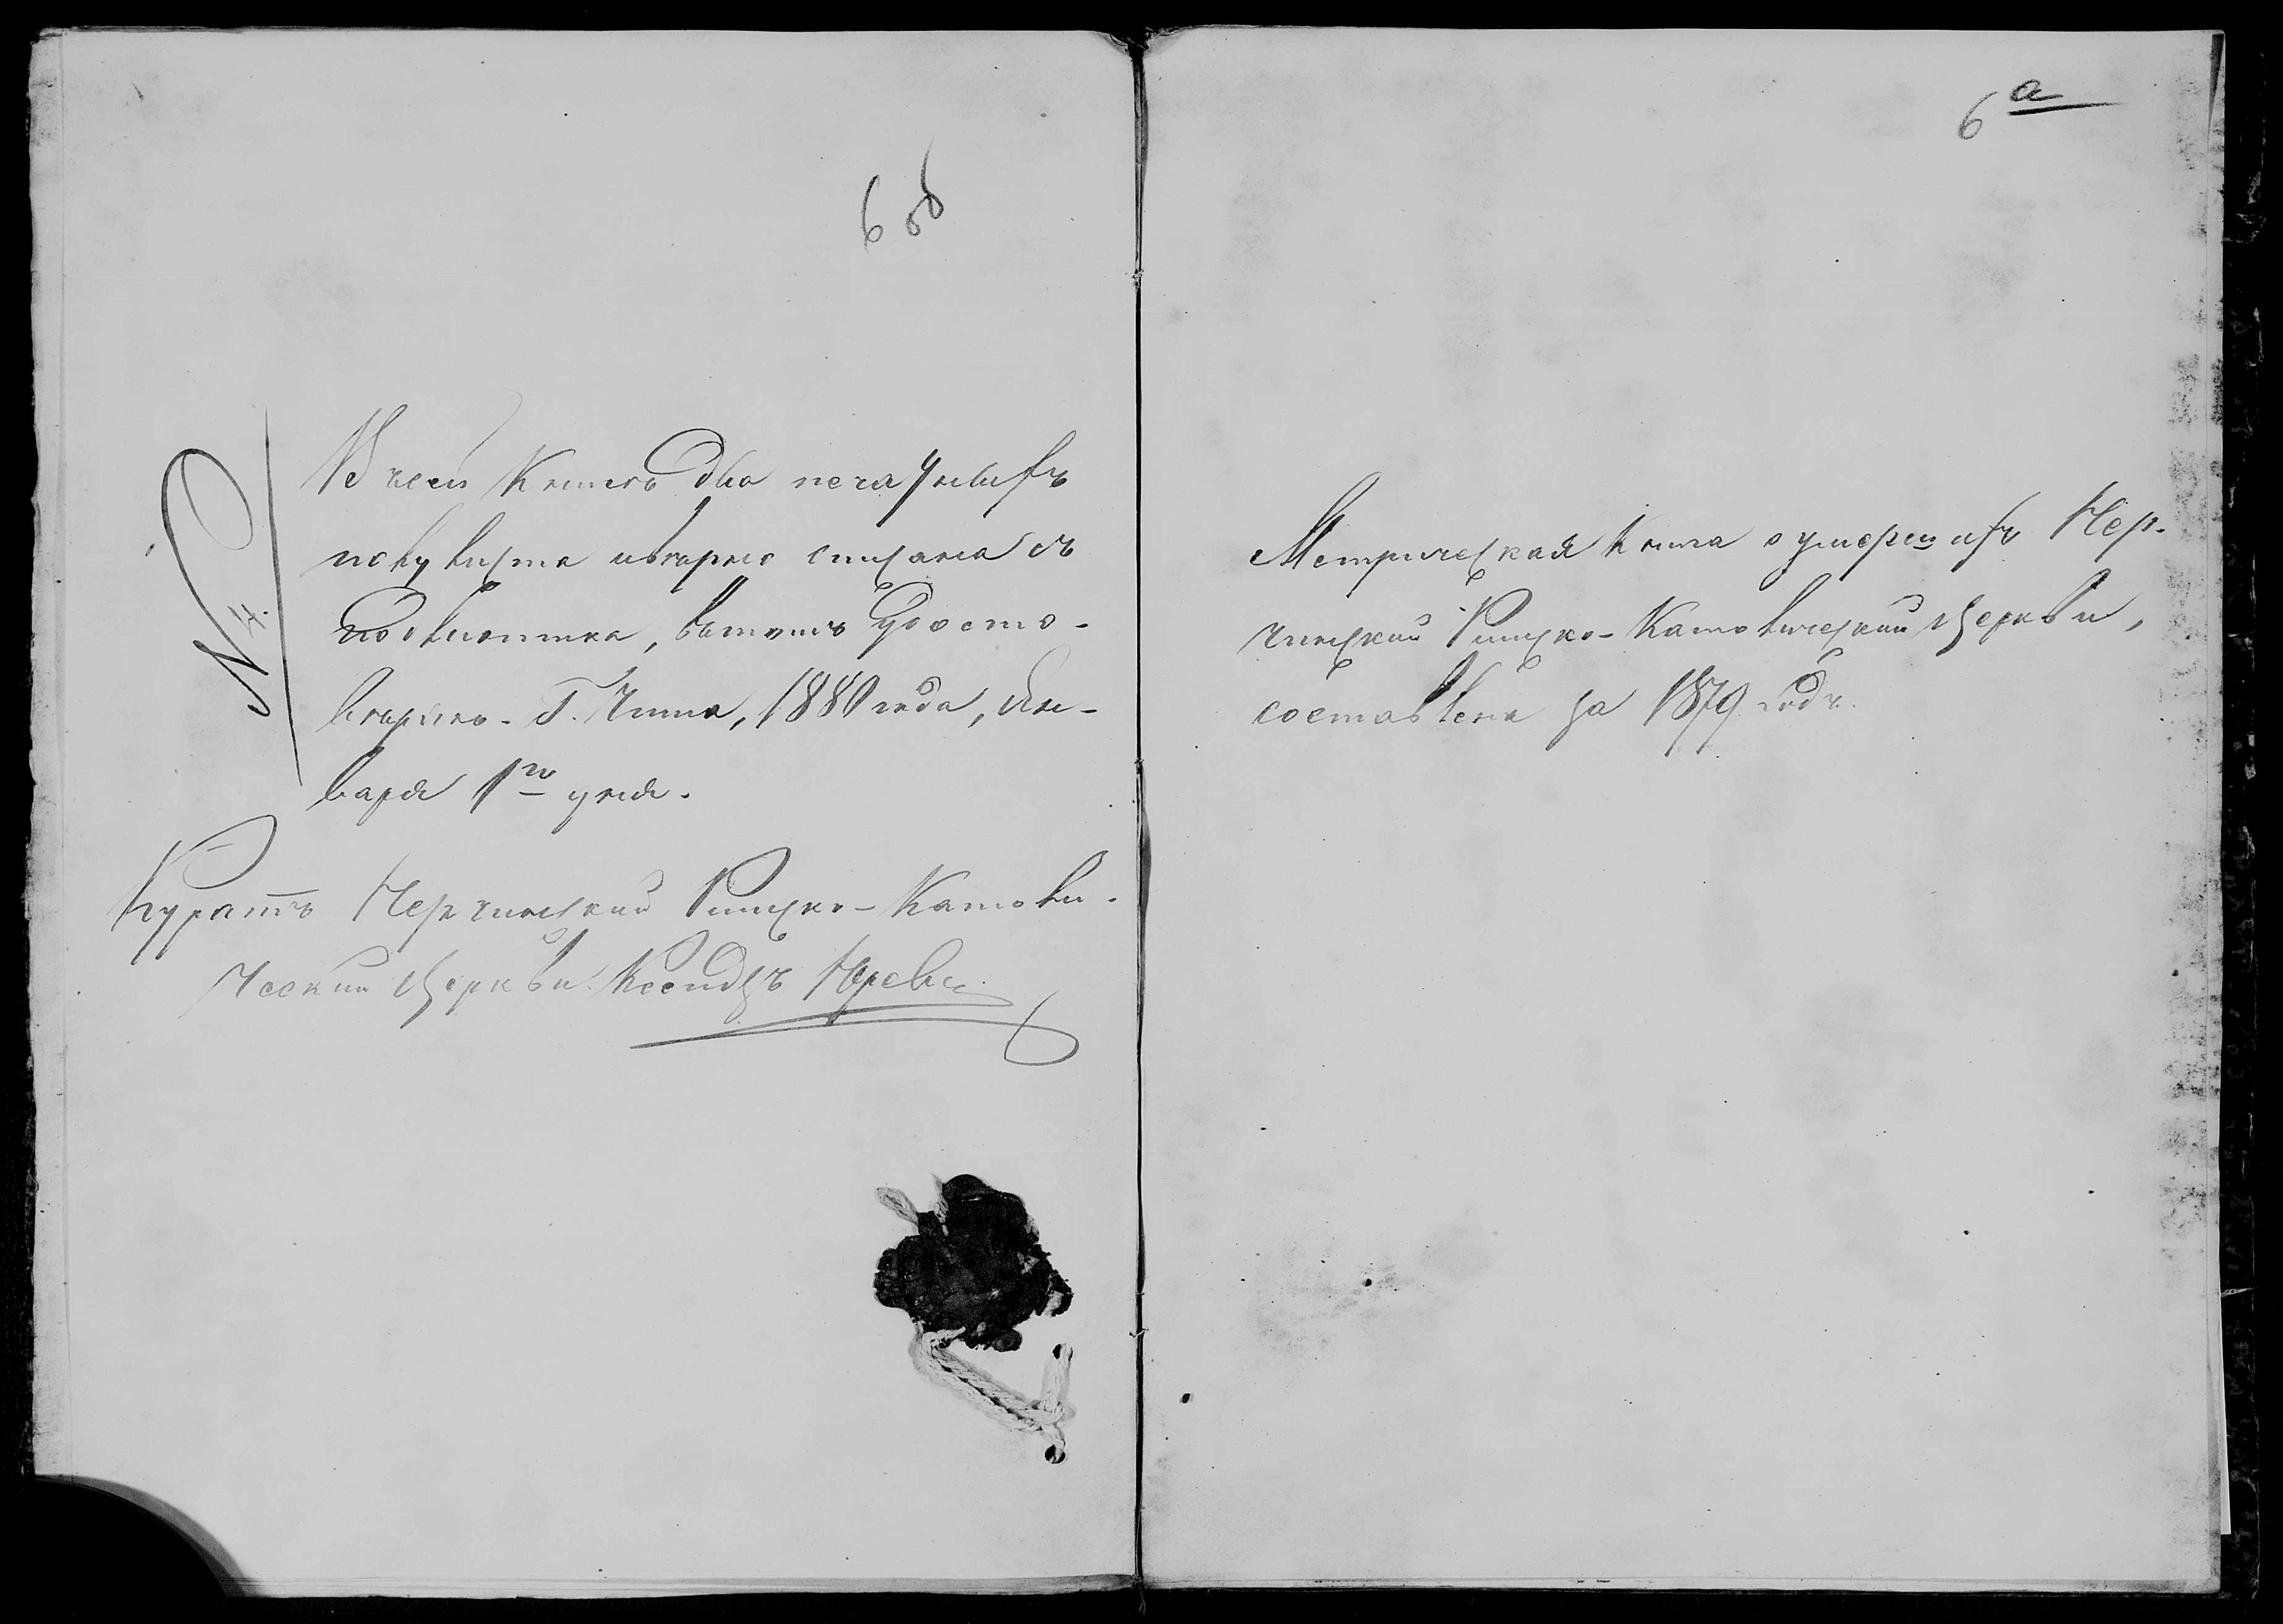 6 об
№ 4.
В сей Книгѣ два печатныхъ
полулиста и вѣрно списана съ
подлинника, въ томъ удосто-
вѣряю. Г. Чита, 1880 года, Ян-
варя 1го дня.
Куратъ Нерчинский Римско-Католи-
ческий Церкви Ксендзъ
6 а
Метрическая Книга о умершихъ Нер-
чинский Римско-Католический Церкви,
составлена за 1879 годъ.